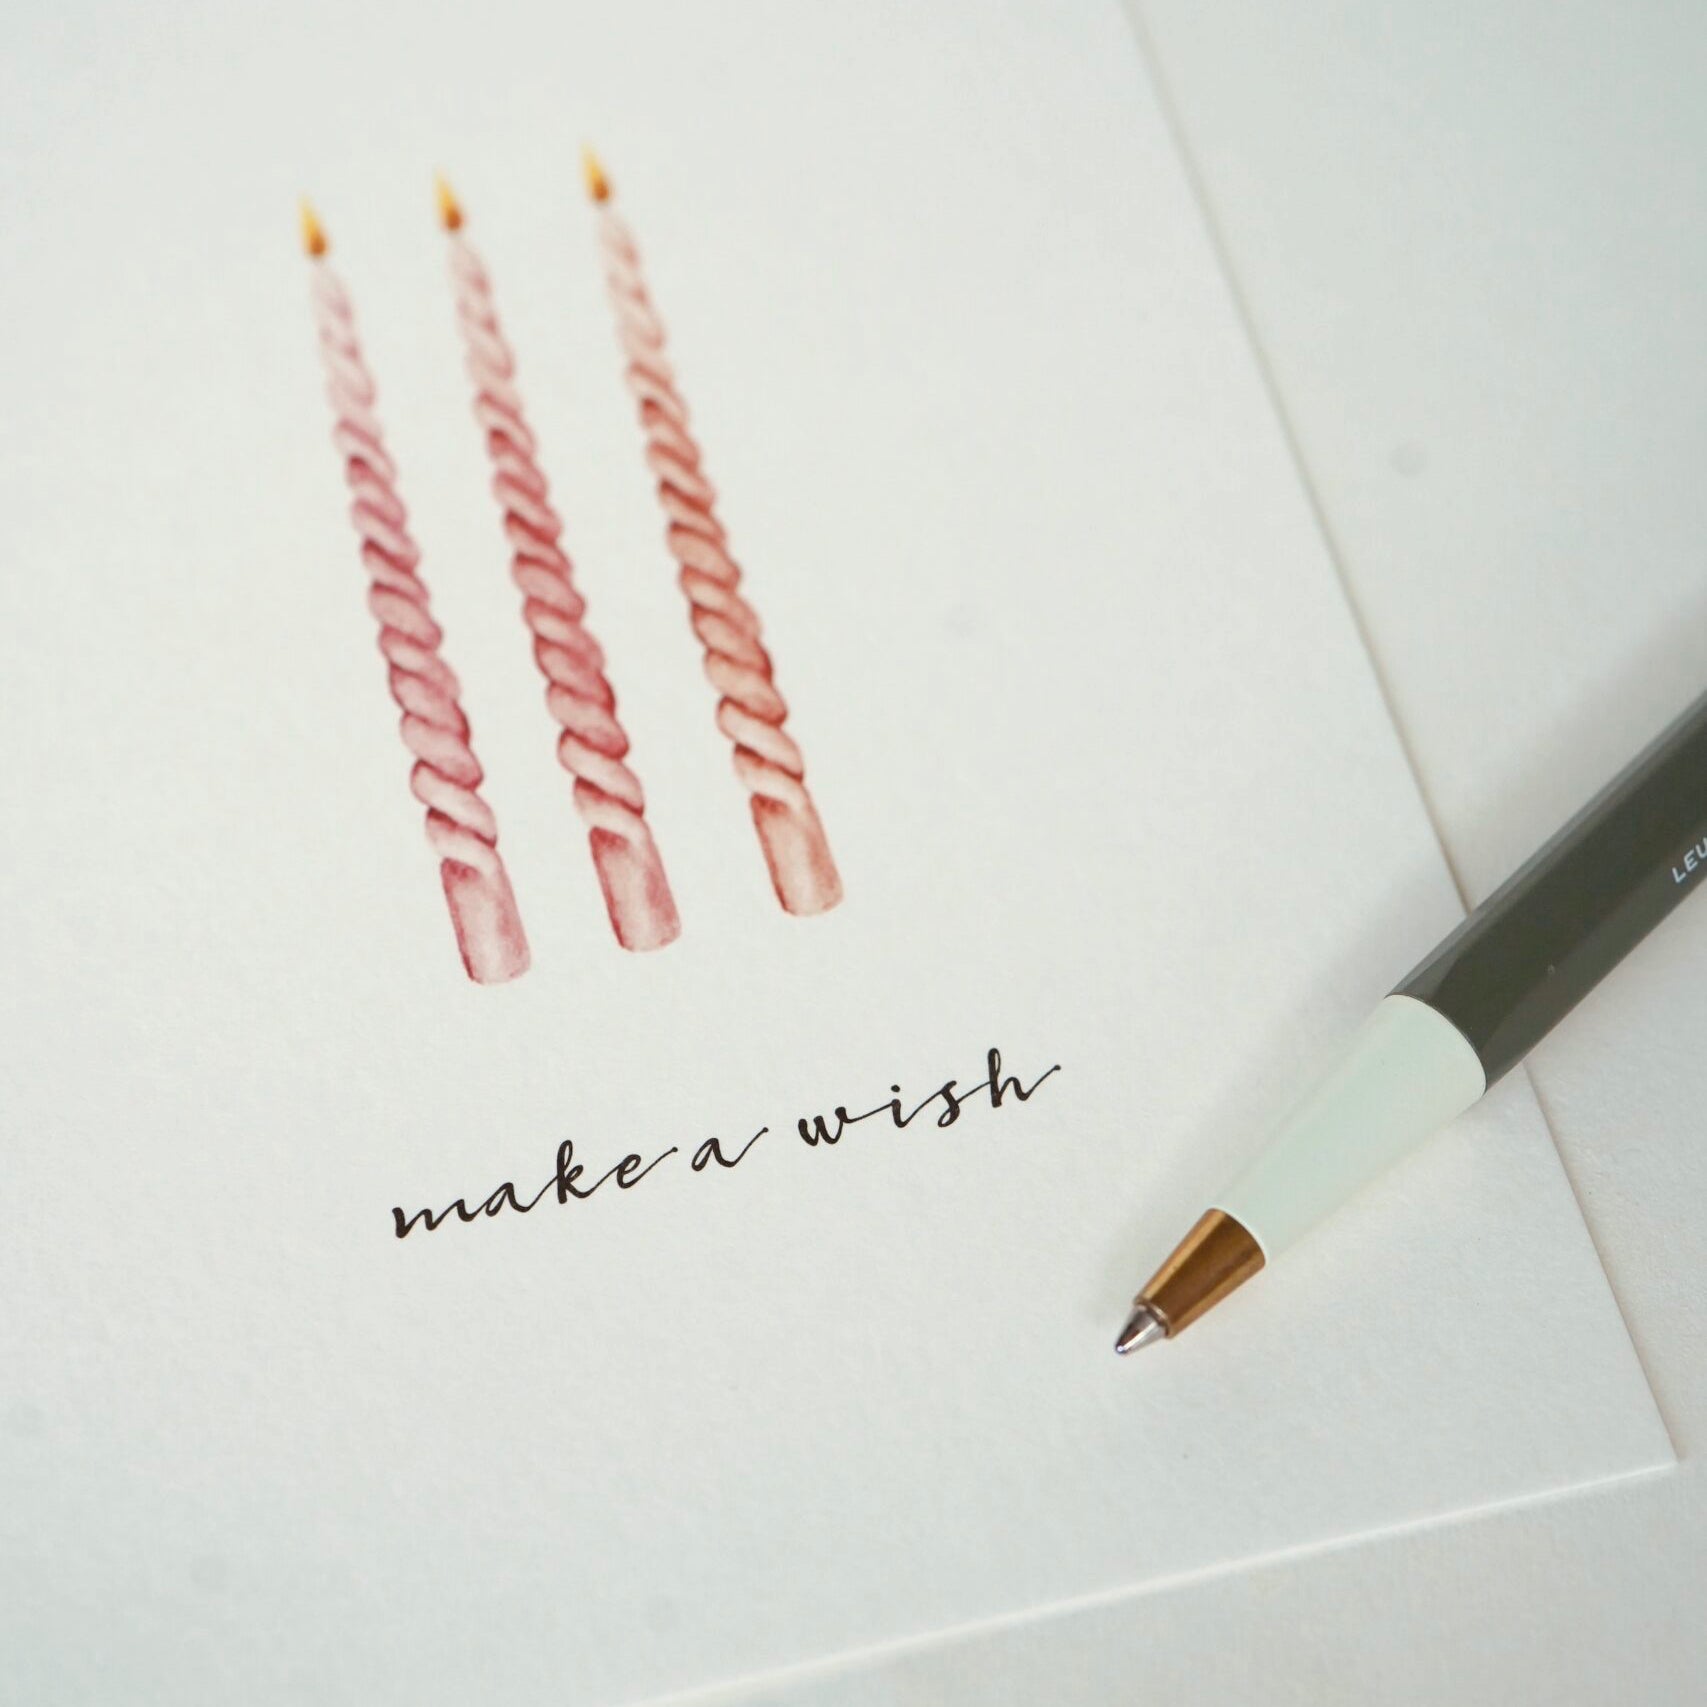 make a wish
LEU